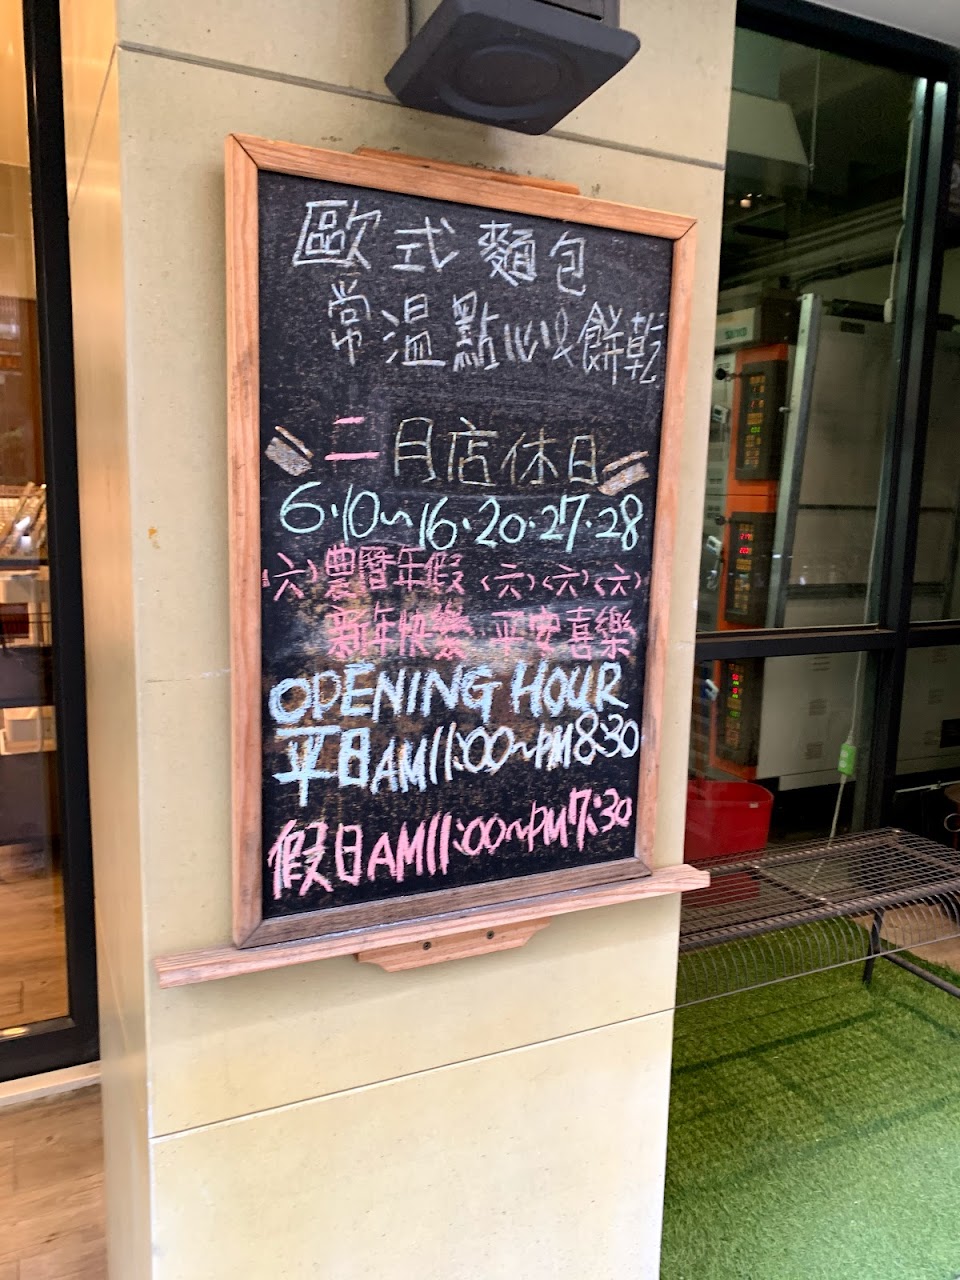 歐式麵包
常溫點心&餅乾
二月店休日
6.10~16.20.27.28
(六)農曆年假(六)(六)(六)
新年快樂 平安喜樂
OPENING HOUR
平日AM11:00~PM8:30
假日AM11:00~PM7:30